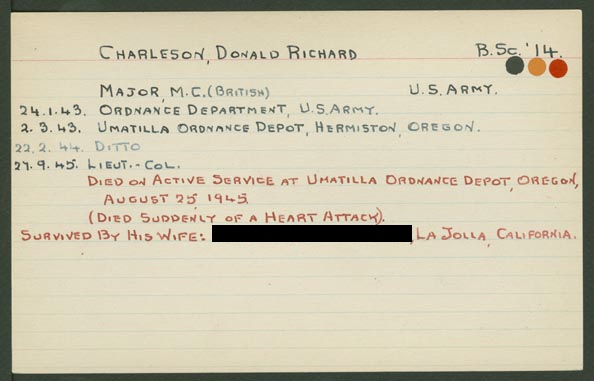 CHARLESON, DONALD RICHARD B.SC. '14.
MAJOR, M.C. (BRITISH) U.S. ARMY.
24.1.43. ORDNANCE DEPARTMENT, U.S. ARMY.
2.3.43. UMATILLA ORDNANCE DEPOT, HERMISTON, OREGON.
22.2.44. DITTO
27.9.45. LIEUT.-COL.
DIED ON ACTIVE SERVICE AT UMATILLA ORDNANCE DEPOT, OREGON,
AUGUST 25, 1945.
(DIED SUDDENLY OF A HEART ATTACK).
SURVIVED BY HIS WIFE: , LA JOLLA, CALIFORNIA.